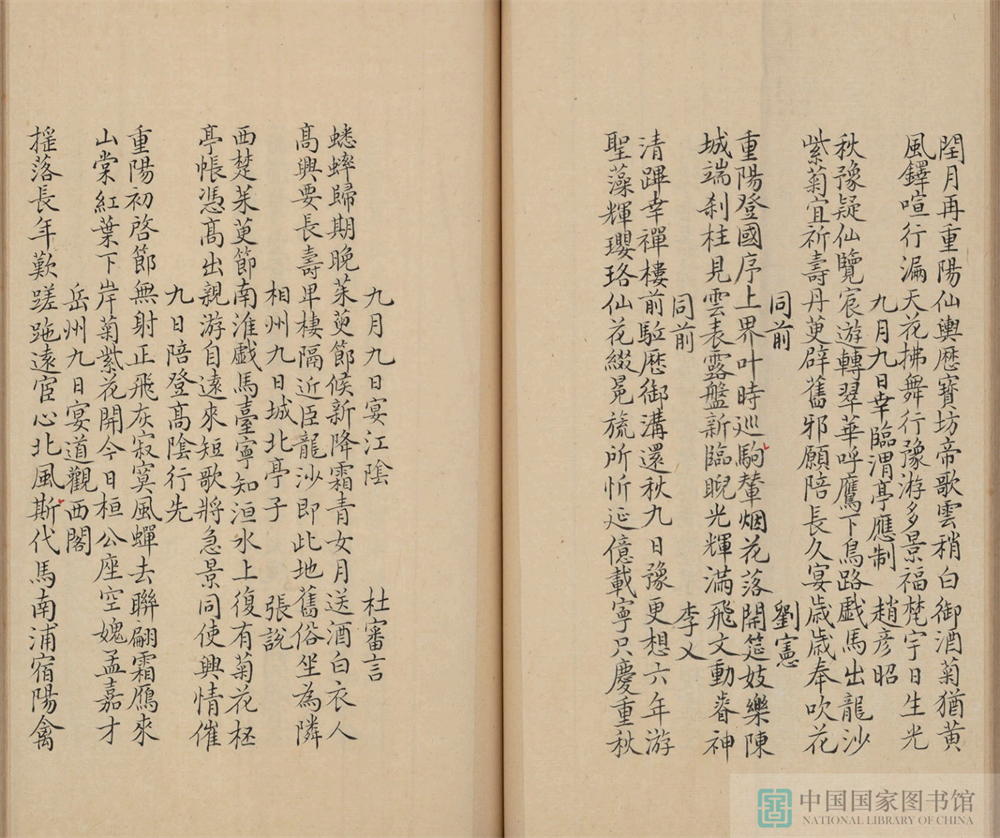 閏月再重陽仙輿歷寳坊帝歌雲稍白御酒菊猶黄
風鐸喧行漏天花拂舞行豫游多景福梵宇日生光
九月九日幸臨渭亭應制 趙彥昭
秋豫疑仙覽宸遊轉翠華呼鷹下鳥路戲馬出龍沙
紫菊宜祈壽丹萸辟舊邪願陪長久宴歲歲奉吹花
同前 劉憲
重陽登國序上界叶時巡駒輦烟花落開筵妓樂陳
城端刹柱見雲表露盤新臨睨光輝滿飛文動睿神
同前 李乂
清蹕幸禪樓前駈歷御溝還秋九日豫更想六年游
聖藻輝瓔珞仙花綴冕旒所忻延億載寧只慶重秋
九月九日宴江陰 杜審言
蟋蟀歸期晚茱萸節候新降霜青女月送酒白衣人
高興要長壽卑棲隔近臣龍沙即此地舊俗坐為隣
相州九日城北亭子 張說
西楚茱萸節南淮戲馬臺寧知洹水上復有菊花杯
亭帳憑高出親游自遠來短歌將急景同使興情催
九日陪登高陰行先
重陽初啓節無射正飛灰寂寞風蟬去聯翩霜鴈來
山棠紅葉下岸菊紫花開今日桓公座空媿孟嘉才
岳州九日宴道觀西閣
摇落長年歎蹉跎遠宦心北風斯代馬南浦宿陽禽
中国国家图书馆
NATIONAL LIBRARY OF CHINA